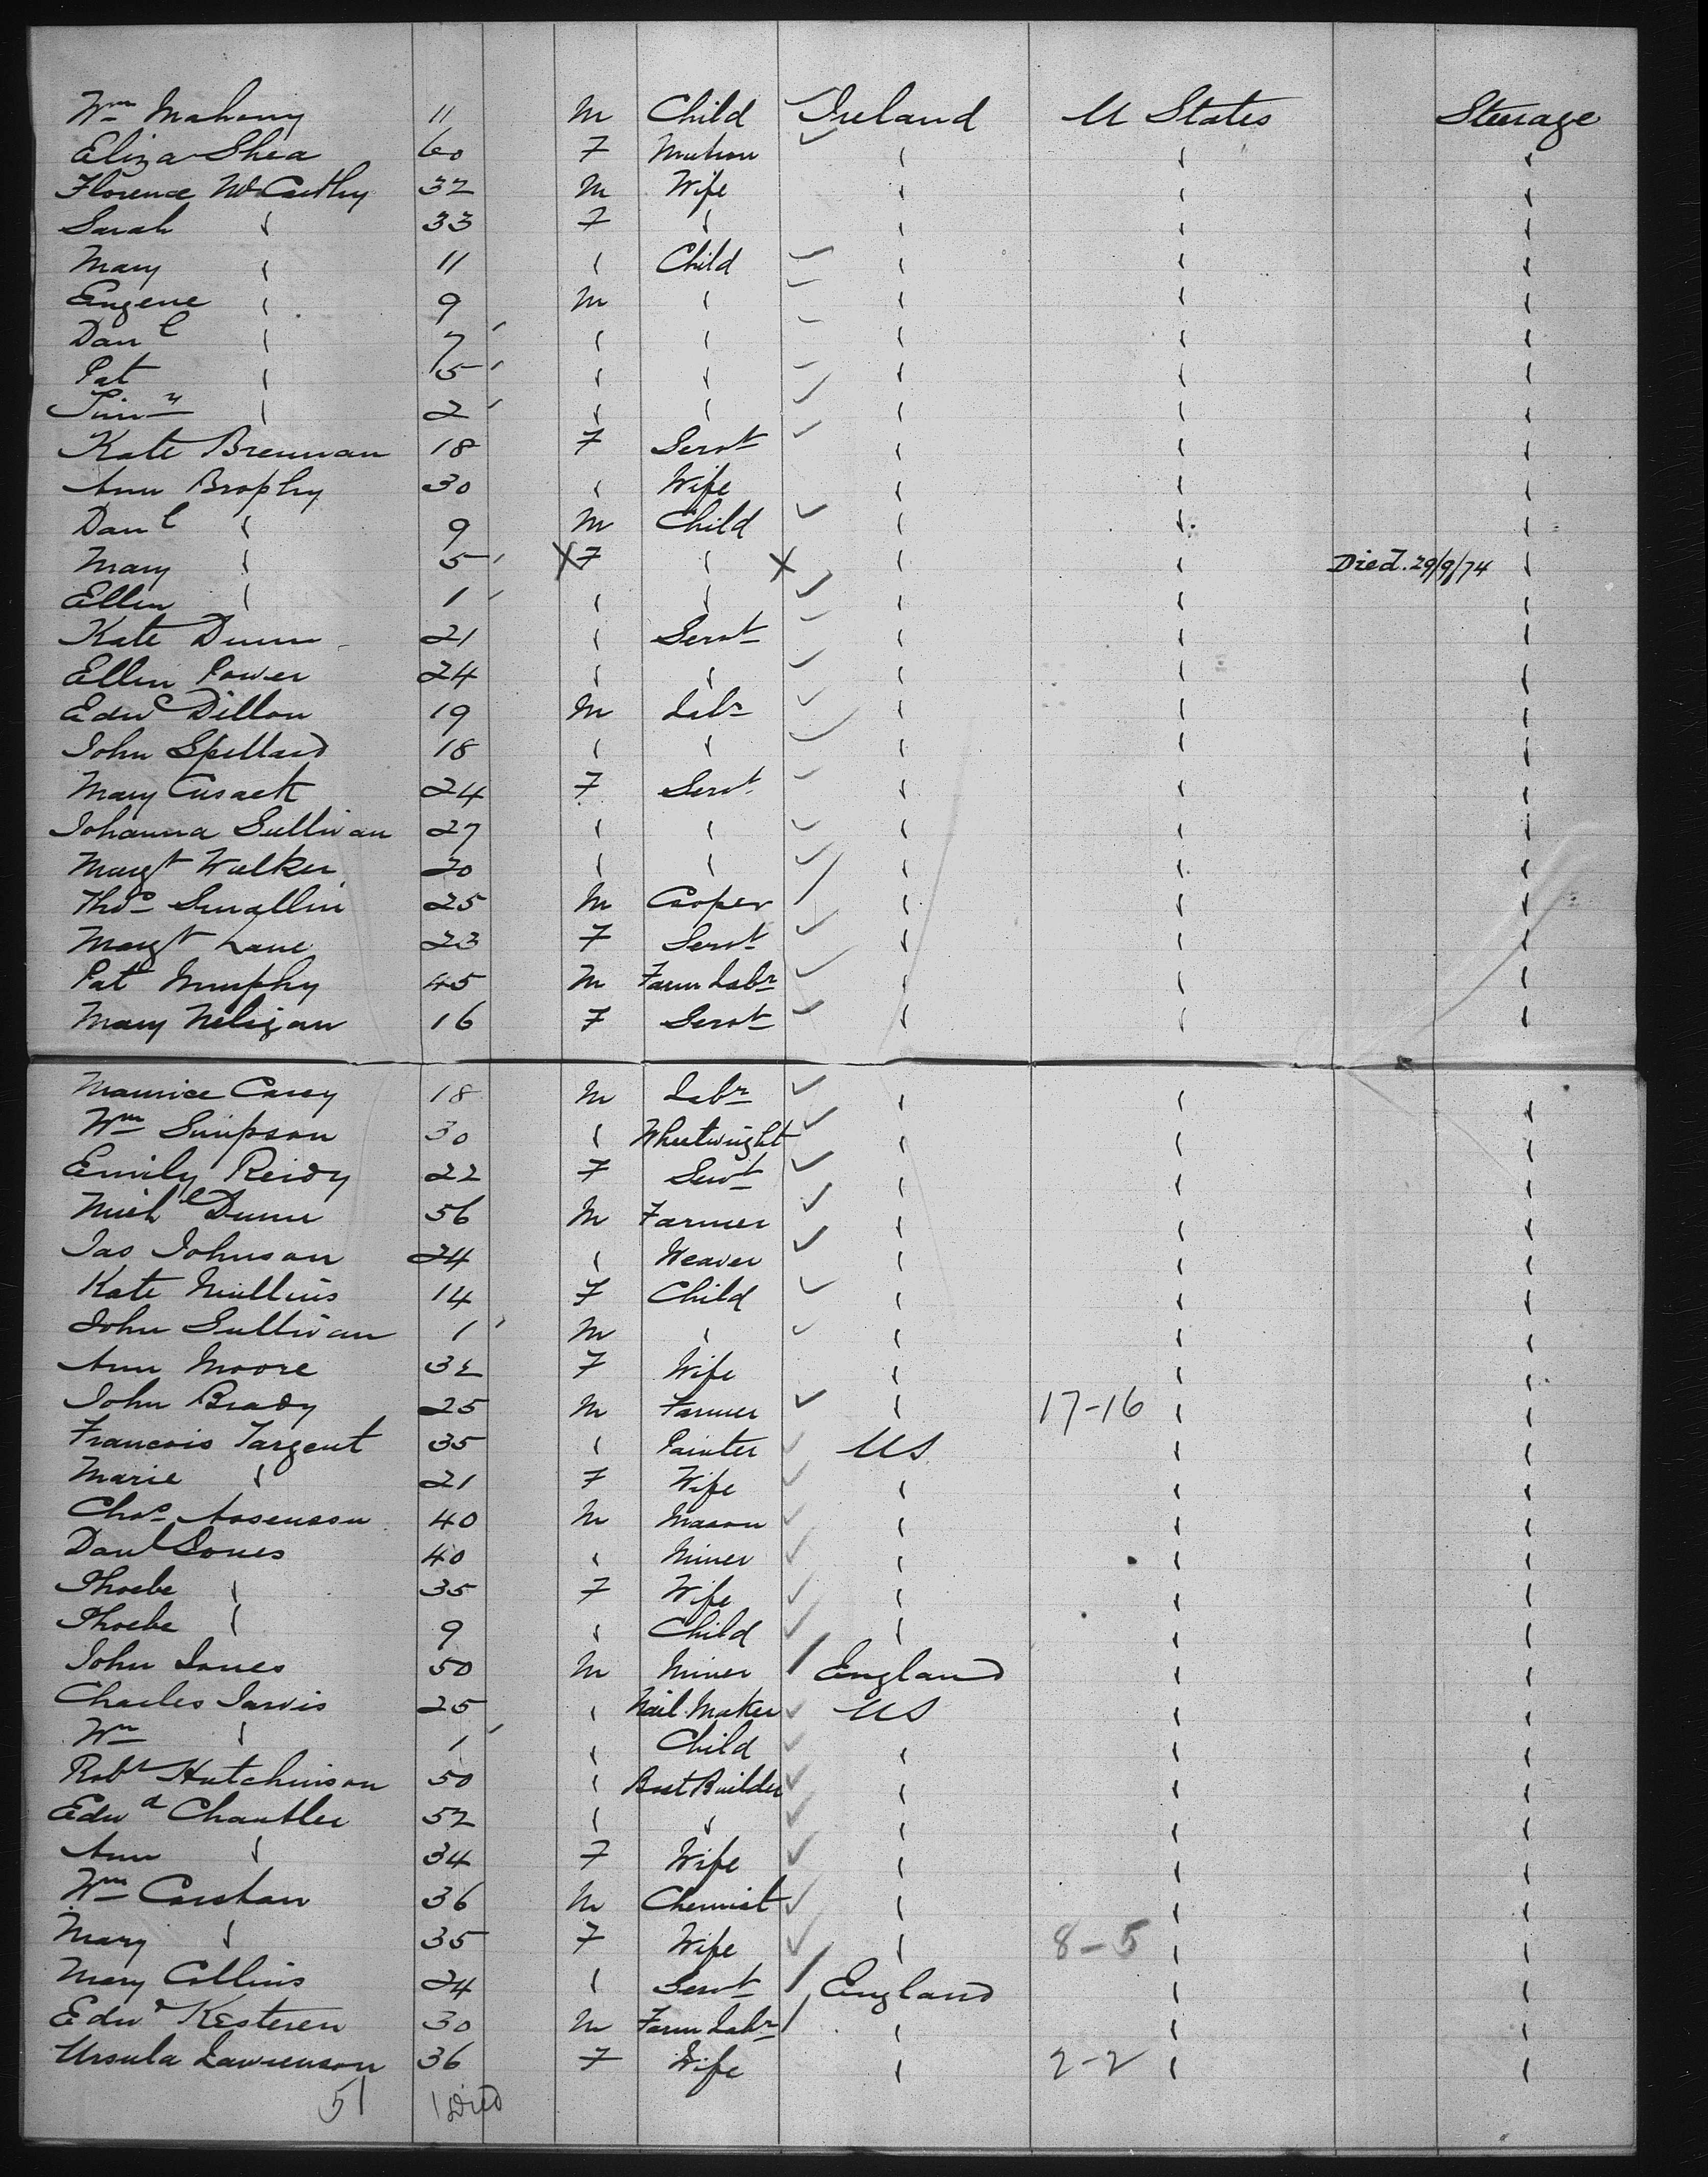 Wm Mahony 11 M Child Ireland U States Steerage
Eliza Shea 60 F Matron " " "
Florence McCarthy 32 M Wife " " "
Sarah " 33 F " " " "
Mary " 11 " Child " " "
Eugene " 9 M " " " "
Danl " 7 " " " " "
Pat " 5 " " " " "
Timy " 2 " " " " "
Kate Brennan 18 F Servt " " "
Ann Brophy 30 " Wife " " "
Danl " 9 M Child " " "
Mary " 5 X F " X " " Died. 29/9/74 "
Ellen " 1 " " " " "
Kate Dunn 21 " Servt " " "
Ellen Power 24 " " " " "
Edwd Dillon 19 M Labr " " "
John Spellard 18 " " " " "
Mary Cusack 24 F Servt " " "
Johanna Sullivan 27 " " " " "
Margt Walker 20 " " " " "
Thos Smallin 25 M Cooper " " "
Margt Lane 23 F Servt " " "
Pat Murphy 45 M Farm Labr " " "
Mary Neligan 16 F Servt " " "
Maurice Carey 18 M Labr " " "
Wm Simpson 30 " Wheelwright " " "
Emily Reidy 22 F Servt " " "
Michl Dunn 56 M Farmer " " "
Jas Johnson 24 " Weaver " " "
Kate Mullins 14 F Child " " "
John Sullivan 1 M " " " "
Ann Moore 32 F Wife " " "
John Brady 25 M Farmer " 17-16 " "
Francois Targent 35 " Painter US " "
Marie " 21 F Wife " " "
Chas 40 M Mason " " "
Danl Jones 40 " Miner " " "
Phoebe " 35 F Wife " " "
Phoebe " 9 " Child " " "
John Jones 50 M Miner England " "
Charles Jarvis 25 " Nail Maker US " "
Wm " 1 " Child " " "
Robt Hutchinson 50 " Boat Builder " " "
Edwd Chantler 52 " " " " "
Ann " 34 F Wife " " "
Wm Carshan 36 M Chemist " " "
Mary " 35 F Wife " 8-5 " "
Mary Collins 24 " Servt England " "
Edwd Kesteren 30 M Farm Labr " " "
Ursula Lawrenson 36 F Wife " 2-2 " "
51 1 Died